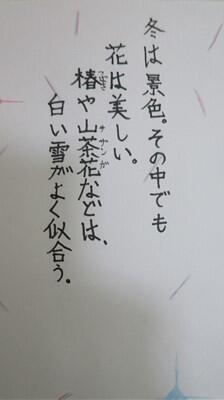 冬は景色。その中でも
花は美しい。
椿や山茶花などは、
白い雪がよく似合う。